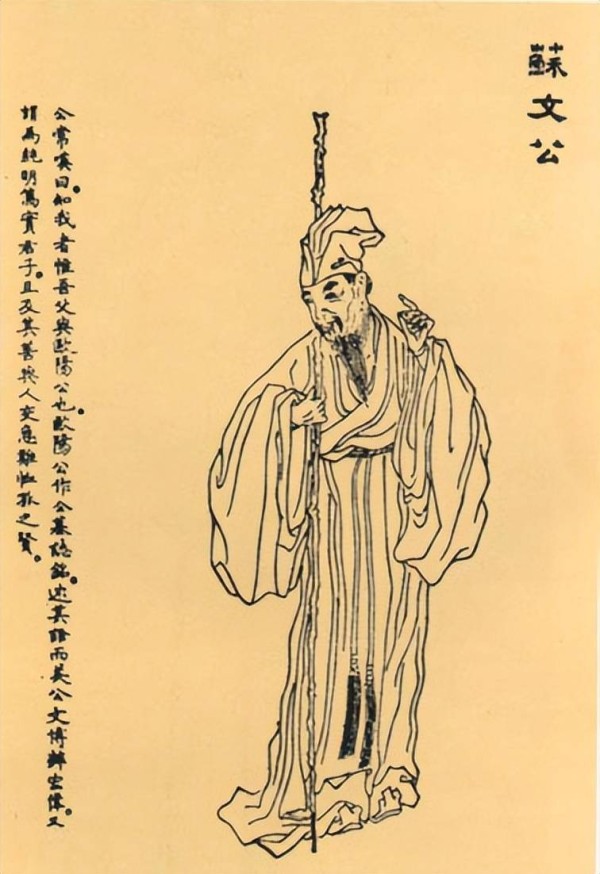 蘇文公
公常嘆曰。知我者惟吾父與歐陽公也。歐陽公作公墓誌銘。述其語而美公文博辯宏偉。又
謂為純明篤實君子。且及其善與人交急難恤孤之賢。